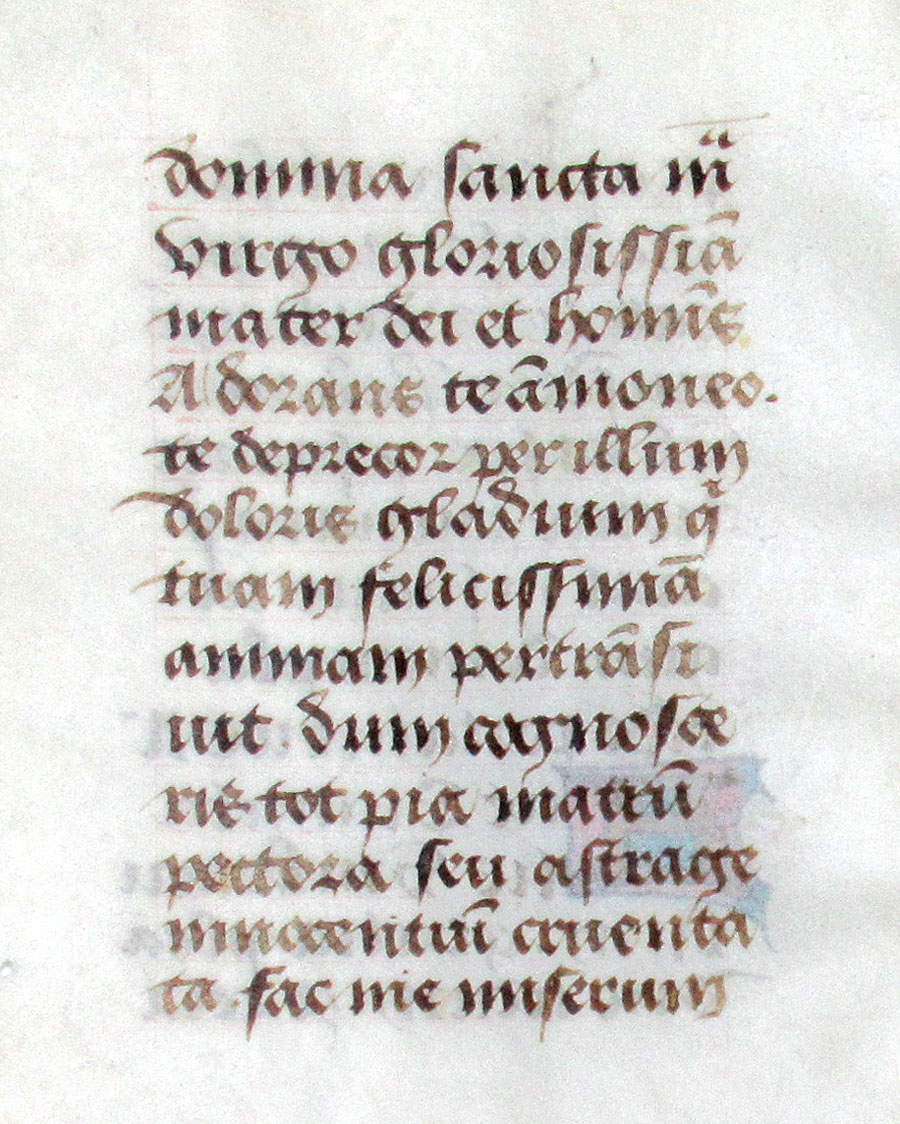 domina sancta mͣͣ
virgo gloriosissiā
mater dei et homīs
Adorans te āmoneo.
te deprecor per illum
doloris gladium qͥ
tuam felicissimā
animam pertrāsi
uit. dum cognosce
ris tot pia matrū
pectora seu astrage
innocentiū cruenta
ta. fac me miserum